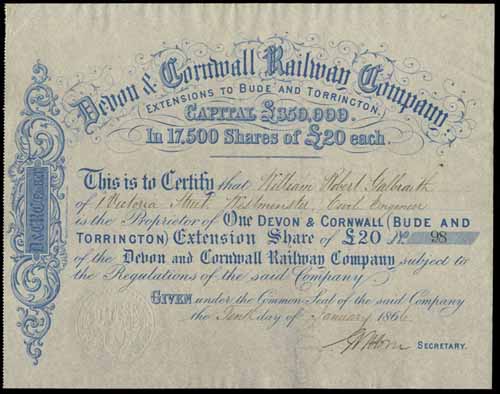 Devon & Cornwall Railway Company
(EXTENSIONS TO BUDE AND TORRINGTON.)
CAPITAL £350,000.
In 17,500 Shares of £20 each.
This is to Certify that William Robert Galbraith
of 1 Victoria Street, Westminster, Civil Engineer
is the Proprietor of ONE DEVON & CORNWALL (BUDE AND
TORRINGTON) Extension Share of £20 No 98
of the Devon and Cornwall Railway Company subject to
the Regulations of the said Company.
GIVEN under the Common Seal of the said Company
the Tenth day of January 1866
SECRETARY.